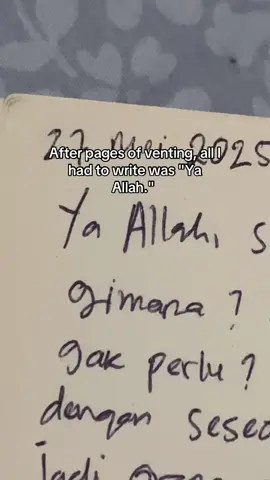 27 Mei 2025
After pages of venting, all I
had to write was "Ya
Allah."
Ya Allah, s
gimana?
gak perlu?
dengan seseo
jadi